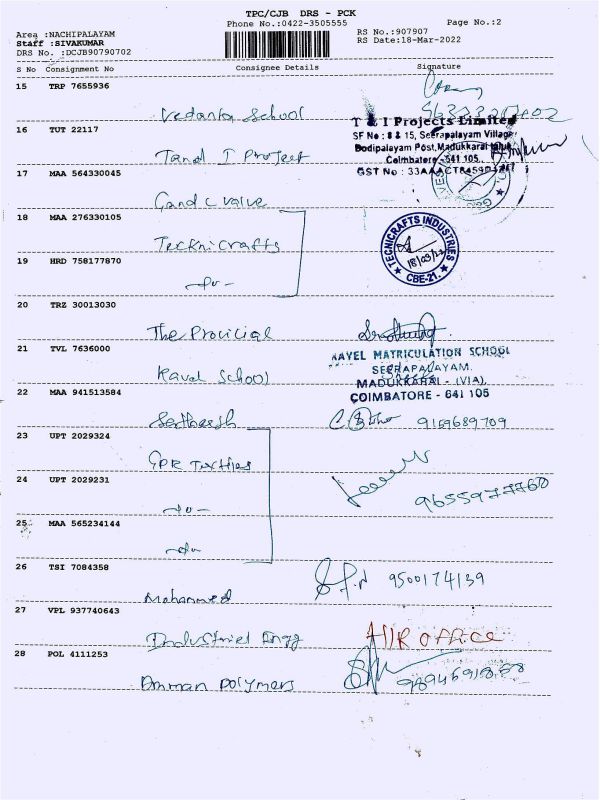 TPC/CJB DRS - PCK
Phone No.:0422-3505555
Page No.:2
Area :NACHIPALAYAM
Staff :SIVAKUMAR
DRS No. :DCJB90790702
RS No.:907907
RS Date:18-Mar-2022
S No Consignment No Consignee Details Signature
15 TRP 7655936
Vedanta School
16 TUT 22117
T & I Projects Limited
SF No : 8 & 15, Seerapalayam Village
Bodipalayam Post, Madukkarai Taluk,
Coimbatore - 641 105.
GST No : 33AAACT8459D1Z
Tand I Project
17 MAA 564330045
Gand c valve
18 MAA 276330105
Tecknicrafts
TECNICRAFTS INDUSTRIES
18/03/22
★ CBE-21. ★
19 HRD 758177870
-do-
20 TRZ 30013030
The Provicial
21 TVL 7636000
KAVEL MATRICULATION SCHOOL
SEERAPALAYAM.
MADUKKARAI - (VIA),
COIMBATORE - 641 105
Kavel School
22 MAA 941513584
Satheesh
9159689709
23 UPT 2029324
GPR Textiles
24 UPT 2029231
9655977760
-do-
25 MAA 565234144
-do-
26 TSI 7084358
9500174139
Mohammed
27 VPL 937740643
Industriel Engg
H/R OFFICE
28 POL 4111253
Amman polymers